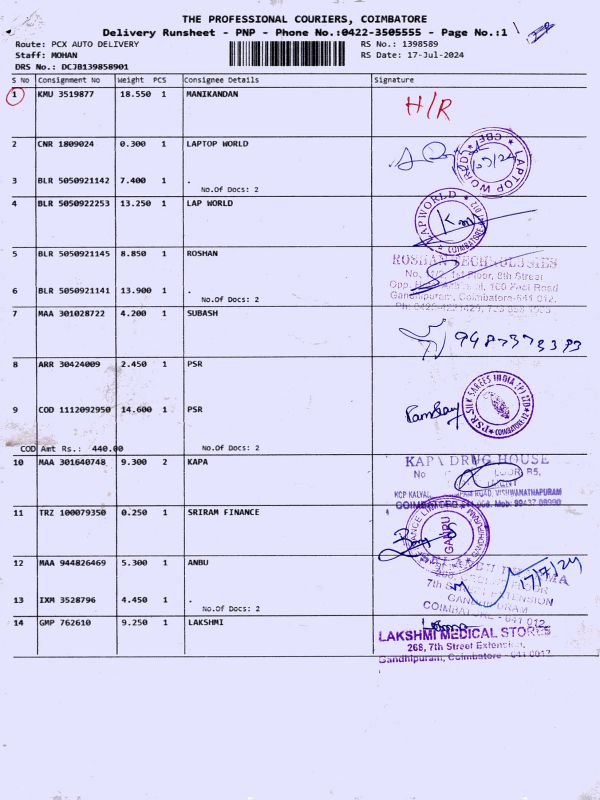 THE PROFESSIONAL COURIERS, COIMBATORE
Delivery Runsheet - PNP - Phone No.:0422-3505555 - Page No.:1
Route: PCX AUTO DELIVERY RS No.: 1398589
Staff: MOHAN RS Date: 17-Jul-2024
DRS No.: DCJB139858901
S No Consignment No Weight PCS Consignee Details Signature
1 KMU 3519877 18.550 1 MANIKANDAN
H/R
2 CNR 1809024 0.300 1 LAPTOP WORLD
LAPTOP WORLD CBE
3 BLR 5050921142 7.400 1 .
No.Of Docs: 2
4 BLR 5050922253 13.250 1 LAP WORLD
LAP WORLD COIMBATORE
5 BLR 5050921145 8.850 1 ROSHAN
ROSHAN TECHNOLOGIES
1st Floor, 8th Street
6 BLR 5050921141 13.900 1 .
Gandhipuram, Coimbatore-641 012.
No.Of Docs: 2
7 MAA 301028722 4.200 1 SUBASH
8 ARR 30424009 2.450 1 PSR
P.S.R. SILK SAREES INDIA (P) LTD COIMBATORE
9 COD 1112092950 14.600 1 PSR
COD Amt Rs.: 440.00 No.Of Docs: 2
10 MAA 301640748 9.300 2 KAPA
KAPA DRUG HOUSE
ROAD, VISHWANATHAPURAM
11 TRZ 100079350 0.250 1 SRIRAM FINANCE
GANDHIPURAM
12 MAA 944826469 5.300 1 ANBU
17/7/24
7th STREET EXTENSION
13 IXM 3528796 4.450 1 .
GANDHIPURAM
No.Of Docs: 2
COIMBATORE - 641 012.
14 GMP 762610 9.250 1 LAKSHMI
LAKSHMI MEDICAL STORES
268, 7th Street Extension,
Gandhipuram, Coimbatore - 641 0012